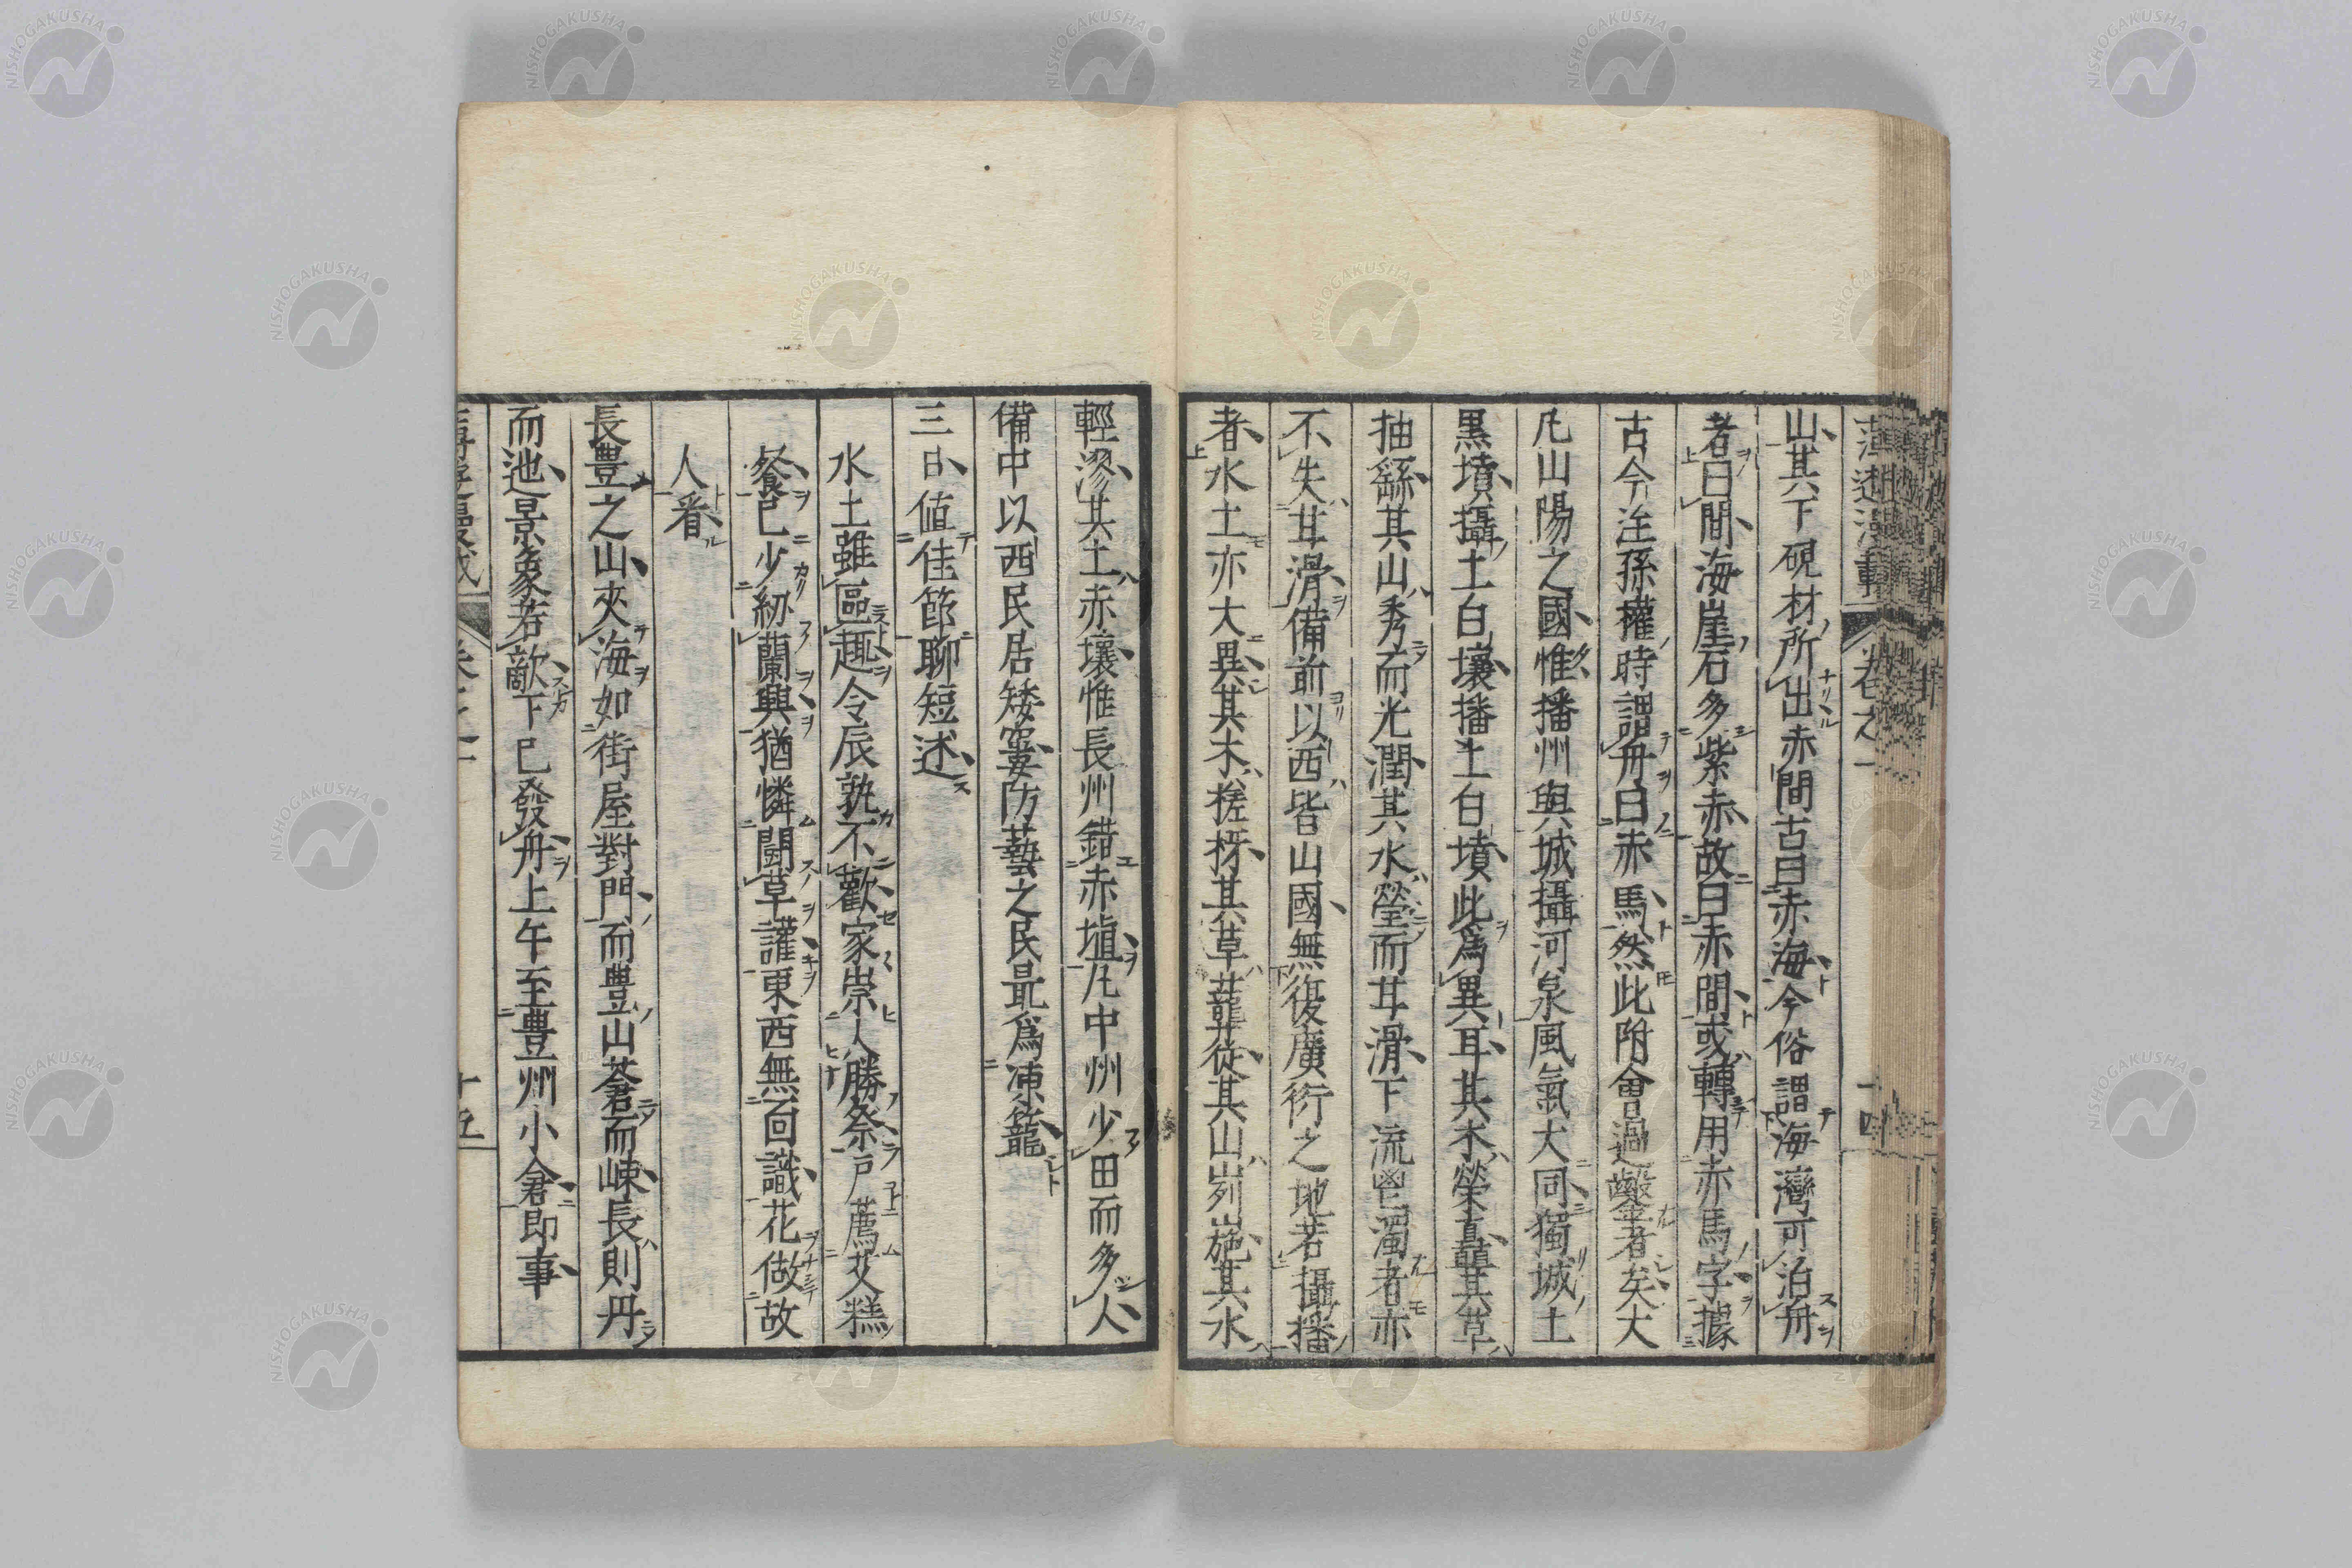 山其下硯材所出赤間古曰赤海今俗謂海灣可泊舟
者曰間海崖石多紫赤故曰赤間或轉用赤馬字據
古今注孫權時謂舟曰赤馬然此附會過鑿者矣大
凡山陽之國惟播州與城攝河泉風氣大同獨城土
黒墳攝土白壤播土白墳此爲異耳其木榮直其草
抽繇其山秀而光潤其水瑩而甘滑下流鬯濁者亦
不失甘滑備前以西皆山國無復廣衍之地若攝播
者水土亦大異其木槎枒其草蘢茳其山峛崺其水
輕漻其土赤壤惟長州錯赤埴凡中州少田而多人
備中以西民居矮窶防藝之民最爲凍籠
三日値佳節聊短述
水土雖區趣令辰孰不歡家崇人勝祭戸薦艾糕
餐已少紉蘭興猶憐鬪草讙東西無回識花做故
人看
長豊之山夾海如街屋對門而豊山蒼而崠長則丹
而迆景象若敵下已發舟上午至豊州小倉即事
卷之一
十四
十五
NISHOGAKUSHA